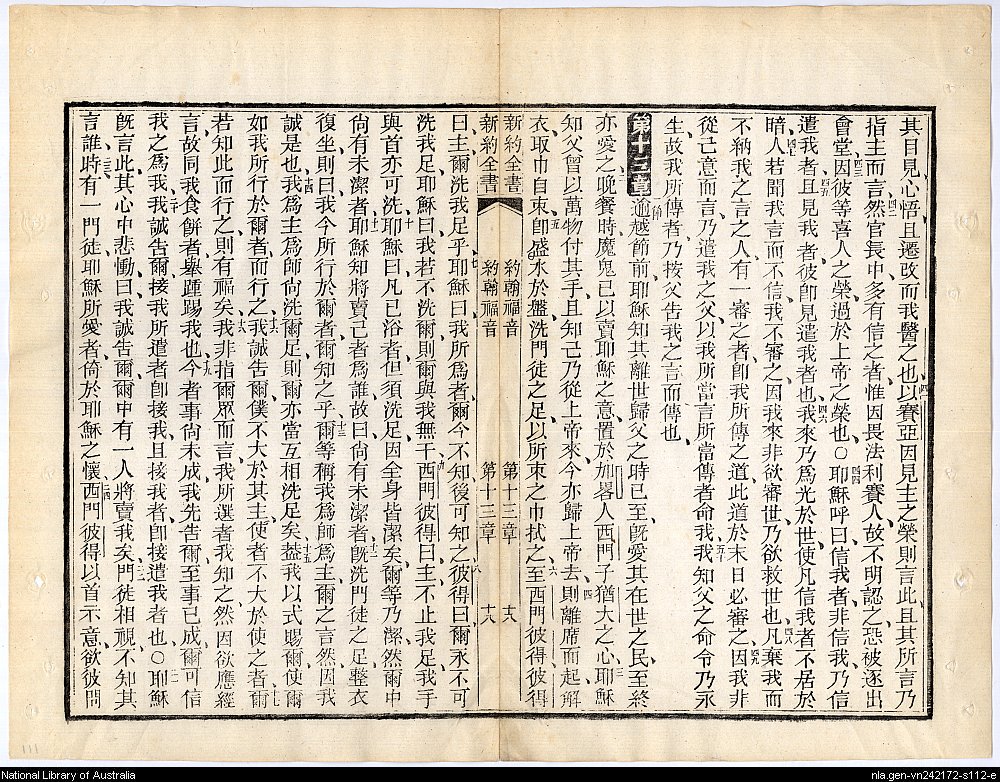 其目見心悟且遷改而我醫之也以賽亞因見主之榮則言此且其所言乃
指主而言然官長中多有信之者惟因畏法利賽人故不明認之恐被逐出
會堂因彼等喜人之榮過於上帝之榮也○耶穌呼曰信我者非信我乃信
遣我者且見我者彼卽見遣我者也我來乃爲光於世使凡信我者不居於
暗人若聞我言而不信我不審之因我來非欲審世乃欲救世也凡棄我而
不納我之言之人有一審之者卽我所傳之道此道於末日必審之因我非
從己意而言乃遣我之父以我所當言所當傳者命我我知父之命令乃永
生故我所傳者乃按父告我之言而傳也
第十三章逾越節前耶穌知其離世歸父之時已至旣愛其在世之民至終
亦愛之晚餐時魔鬼已以賣耶穌之意置於加畧人西門子猶大之心耶穌
知父曾以萬物付其手且知己乃從上帝來今亦歸上帝去則離席而起解
衣取巾自束卽盛水於盤洗門徒之足以所束之巾拭之至西門彼得彼得
新約全書 約翰福音 第十三章 大
新約全書 約翰福音 第十三章 十八
曰主爾洗我足乎耶穌曰我所爲者爾今不知後可知之彼得曰爾永不可
洗我足耶穌曰我若不洗爾則爾與我無干西門彼得曰主不止我足我手
與首亦可洗耶穌曰凡已浴者但須洗足因全身皆潔矣爾等乃潔然爾中
尙有未潔者耶穌知將賣己者爲誰故曰尙有未潔者旣洗門徒之足整衣
復坐則曰我今所行於爾者爾知之乎爾等稱我爲師爲主爾之言然因我
誠是也我爲主爲師尙洗爾足則爾亦當互相洗足矣蓋我以式賜爾使爾
如我所行於爾者而行之我誠告爾僕不大於其主使者不大於使之者爾
若知此而行之則有福矣我非指爾眾而言我所選者我知之然因欲應經
言故同我食餅者舉踵踢我也今者事尙未成我先告爾至事已成爾可信
我之爲我我誠告爾接我所遣者卽接我且接我者卽接遣我者也○耶穌
旣言此其心中悲慟曰我誠告爾爾中有一人將賣我矣門徒相視不知其
言誰時有一門徒耶穌所愛者倚於耶穌之懷西門彼得以首示意欲彼問
111
National Library of Australia
nla.gen-vn242172-s112-e